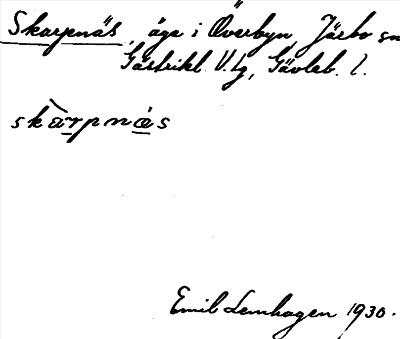 Skarpnäs, äga i Överbyn, Järbo sn
Gästrikl. V. tg, Gävleb. l.
skàrpnás
Emil Lenhagen 1930.